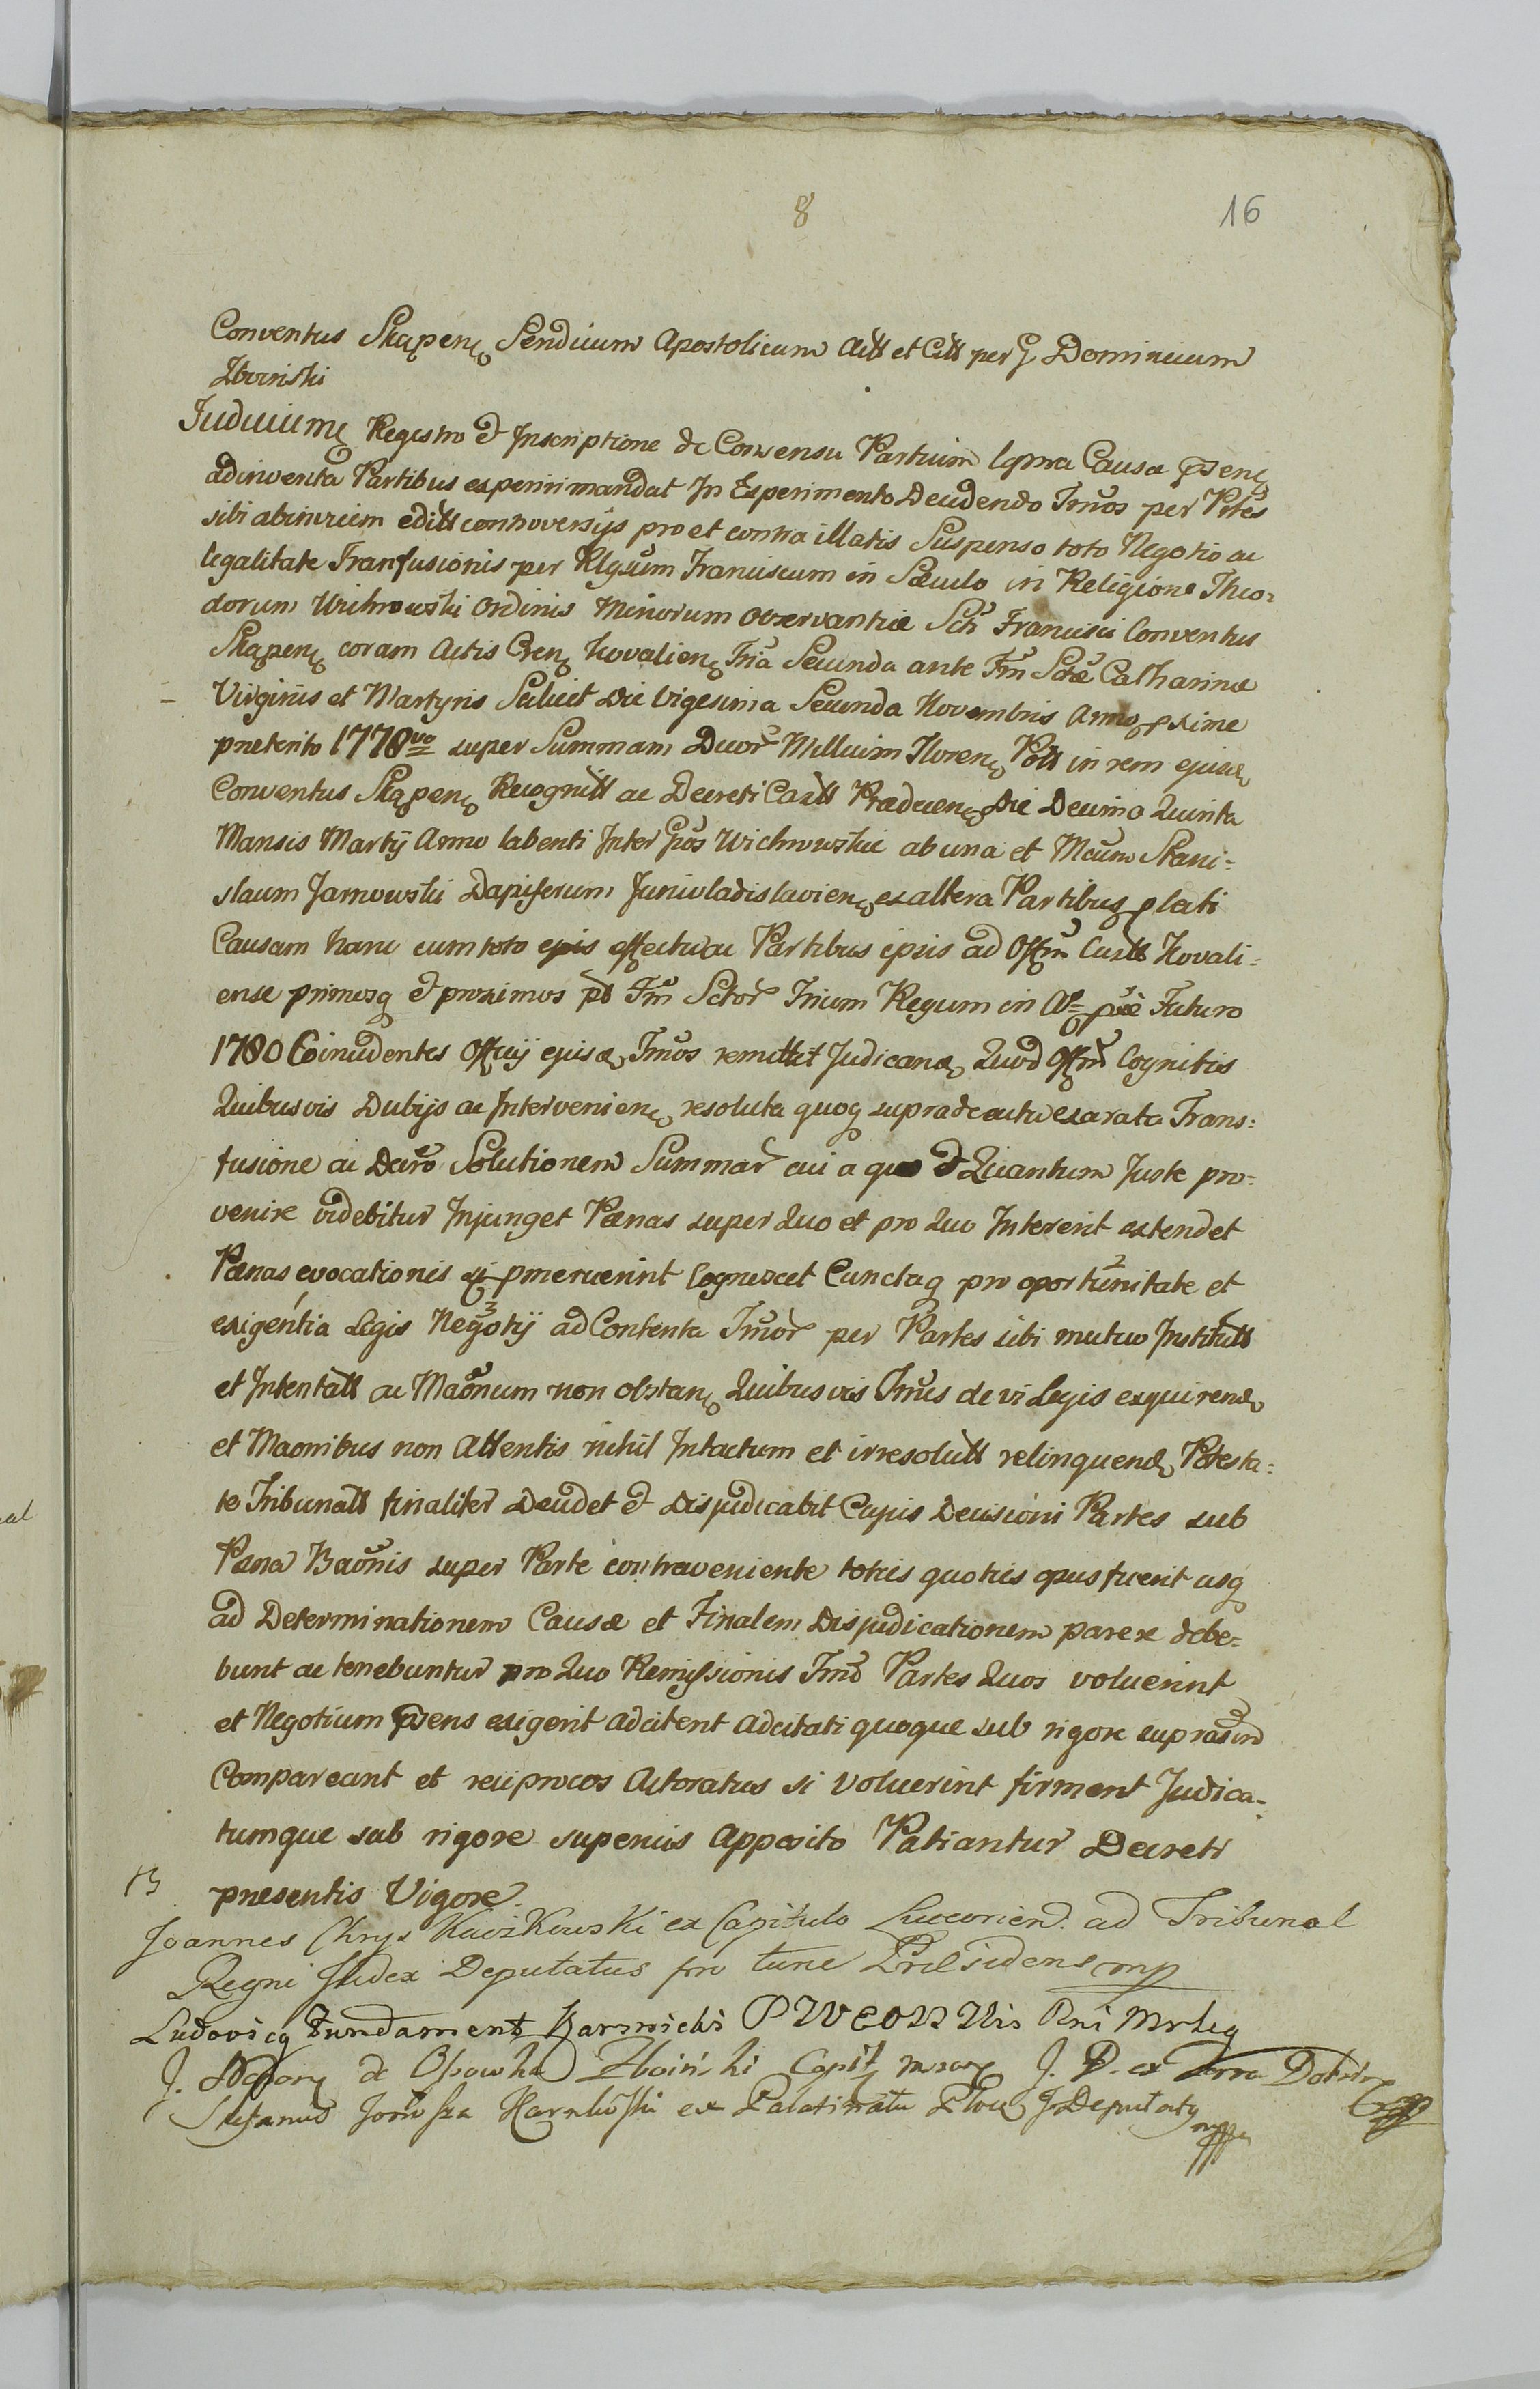 8
16
Conventus Skąpenę Sendicum Apostolicum Actt et Citt per G Dominicum
Zboinski
Judicium Registro et Inscriptione de Consensu Partium Causa
adinventa Partibus experiri mandat In Experimento Decidendo Tmos per Ptes
sibi abinvicem editt controversijs pro et contra illatis Suspenso toto Negotio ac
legalitate Transfusionis per Rlgsum Franciscum in Sæculo in Religione Theo=
dorum Wichrowski Ordinis Minorum Observantiæ Scti Francisci Conventus
Skąpenę coram Actis Kovalienę Fria Secunda ante Fm Sctæ Catharinæ
Virginis et Martyris Scilicet Die Vigesima Secunda Novembris Anno pxime
preterito 1778vo super Summam Duor Millium Florenę Poll in rem ejusdę
Conventus Skąpenę Recognitt ac Decreti Castt Die Decima Quinta
Mensis Martij Anno labenti Inter Gsos Wichrowskie ab una et Mcum Stani=
slaum Jarnowski Dapiferum Juniuladislavienę ex altera Partibus plati
Causam hanc cum toto ejus effectu ac Partibus ipsis ad Offm Castt Kovali=
ense primos et proximos pt Fm Sctor Trium Regum in Ao Futuro
1780 Coincidentes Officij ejusdę Tmos remittit Judicandę Quod Offm Cognitis
Quibusvis Dubijs ac Intervenienę resoluta quoq supra de actu exarata Trans=
fusione ac Decro Solutionem Summar cui a quo et Quantum Juste pro=
venire videbitur Injunget Pænas super Quo et pro Quo Intererit extendet
Pænas evocationis si pmeruerint Cognoscet Cunctaq pro oportunitate et
exigentia Legis Negotij ad Contenta Tmor per Partes sibi mutuo Institutt
et Intentatt ac Maonum non obstanę Quibusvis Tmis de vi Legis exquirendę
et Maonibus non Attentis nihil Intactum et irresolutt relinquendę Potesta=
te Tribunatt finaliter Decidet et Disjudicabit Cujus Decisioni Partes sub
Pæna Baonis super Parte contraveniente toties quoties opus fuerit usq
ad Determinationem Causæ et Finalem Disjudicationem parere debe=
bunt ac tenebuntur pro Quo Remissionis Tmo Partes Quos voluerint
et Negotium psens exigerit adcitent adcitati quoque sub rigore
Compareant et reciprocos Actoratus si voluerint firment Judica=
tumque sub rigore superius Apposito Patiantur Decreti
presentis Vigore.
Joannes Chrys Kaczkowski ex Capitulo Luceorien. ad Tribunal
Regni Judex Deputatus pro tunc Præsidens mp
Ludovicq Fundament Karnicki
J. de Ossowka Zboiński J. D. ex Terra
Stefanus Karnkowski ex Palatinatu J Deputatq